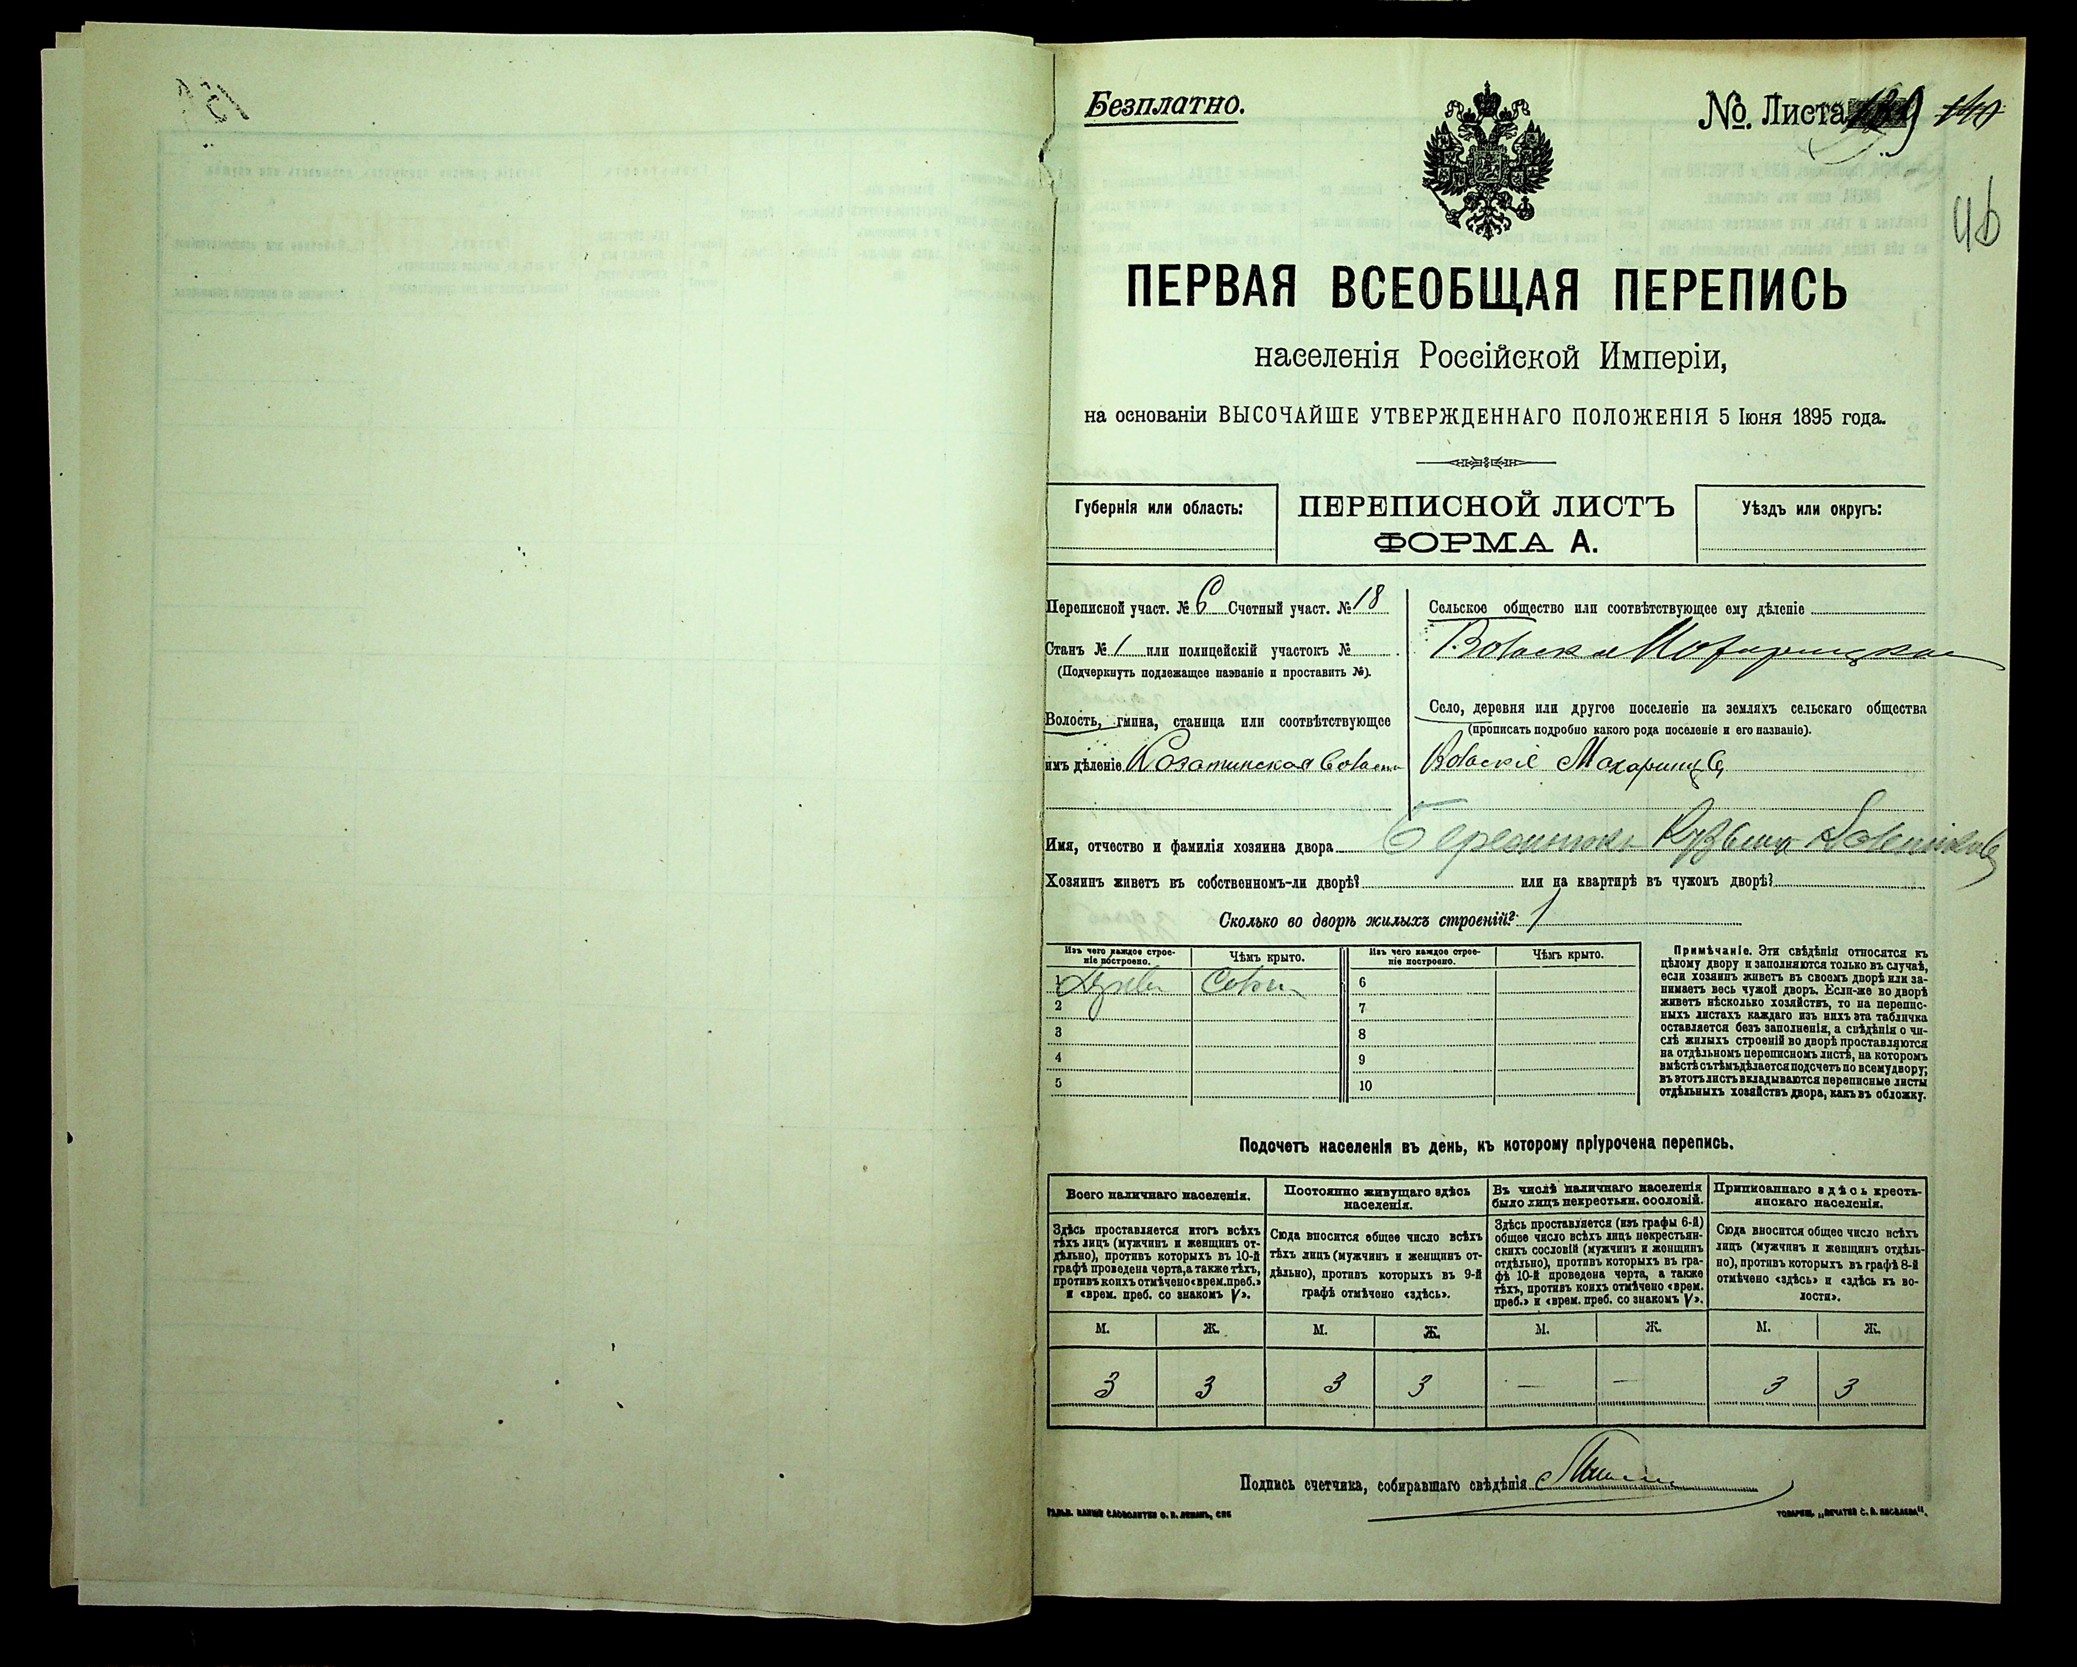 Безплатно.
No. Листа
46
ПЕРВАЯ ВСЕОБЩАЯ ПЕРЕПИСЬ
населенія Россійской Имперіи,
на основаніи ВЫСОЧАЙШЕ УТВЕРЖДЕННАГО ПОЛОЖЕНІЯ 5 Іюня 1895 года.
Губернія или область:
ПЕРЕПИСНОЙ ЛИСТЪ
ФОРМА А.
Уѣздъ или округъ:
Переписной участ. № 6 Счетный участ. № 18
Станъ № 1 или полицейскій участокъ №
(Подчеркнуть подлежащее названіе и проставить №).
Волость, гмина, станица или соотвѣтствующее
имъ дѣленіе Козатинская
Сельское общество или соотвѣтствующее ему дѣленіе
Село, деревня или другое поселеніе на земляхъ сельскаго общества
(прописать подробно какого рода поселеніе и его названіе).
Имя, отчество и фамилія хозяина двора
Хозяинъ живетъ въ собственномъ-ли дворѣ? или на квартирѣ въ чужомъ дворѣ?
Сколько во дворѣ жилыхъ строеній? 1
Изъ чего каждое строе-
ніе построено.
Чѣмъ крыто.
Изъ чего каждое строе-
ніе построено.
Чѣмъ крыто.
1
6
2
7
3
8
4
9
5
10
Примѣчаніе. Эти свѣдѣнія относятся къ
цѣлому двору и заполняются только въ случаѣ,
если хозяинъ живетъ въ своемъ дворѣ или за-
нимаетъ весь чужой дворъ. Если-же во дворѣ
живетъ нѣсколько хозяйствъ, то на перепис-
ныхъ листахъ каждаго изъ нихъ эта табличка
оставляется безъ заполненія, а свѣдѣнія о чи-
слѣ жилыхъ строеній во дворѣ проставляются
на отдѣльномъ переписномъ листѣ, на которомъ
вмѣстѣ съ тѣмъ дѣлается подсчетъ по всему двору;
въ этотъ листъ вкладываются переписные листы
отдѣльныхъ хозяйствъ двора, какъ въ обложку.
Подсчетъ населенія въ день, къ которому пріурочена перепись.
Всего наличнаго населенія.
Здѣсь проставляется итогъ всѣхъ
тѣхъ лицъ (мужчинъ и женщинъ от-
дѣльно), противъ которыхъ въ 10-й
графѣ проведена черта, а также тѣхъ,
противъ коихъ отмѣчено «врем. преб.»
и «врем. преб. со знакомъ V».
Постоянно живущаго здѣсь
населенія.
Сюда вносится общее число всѣхъ
тѣхъ лицъ (мужчинъ и женщинъ от-
дѣльно), противъ которыхъ въ 9-й
графѣ отмѣчено «здѣсь».
Въ числѣ наличнаго населенія
было лицъ некрестьян. сословій.
Здѣсь проставляется (изъ графы 6-й)
общее число всѣхъ лицъ некрестьян-
скихъ сословій (мужчинъ и женщинъ
отдѣльно), противъ которыхъ въ гра-
фѣ 10-й проведена черта, а также
тѣхъ, противъ коихъ отмѣчено «врем.
преб.» и «врем. преб. со знакомъ V».
Приписаннаго здѣсь кресть-
янскаго населенія.
Сюда вносится общее число всѣхъ
лицъ (мужчинъ и женщинъ отдѣль-
но), противъ которыхъ въ графѣ 8-й
отмѣчено «здѣсь» и «здѣсь къ во-
лости».
М. Ж. М. Ж. М. Ж. М. Ж.
3 3 3 3 — — 3 3
Подпись счетчика, собиравшаго свѣдѣнія